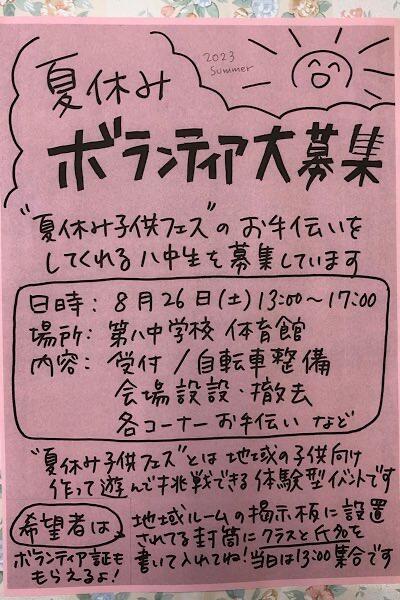 2023
Summer
夏休み
ボランティア大募集
"夏休み子供フェス"のお手伝いを
してくれる八中生を募集しています
日時：8月26日(土)13:00〜17:00
場所：第八中学校 体育館
内容：受付／自転車整備
会場設設・撤去
各コーナーお手伝い など
"夏休み子供フェス"とは地域の子供向け
作って遊んで挑戦できる体験型イベントです
希望者は
地域ルームの掲示板に設置
されてる封筒にクラスと氏名を
書いて入れてね！当日は13:00集合です
ボランティア証も
もらえるよ！